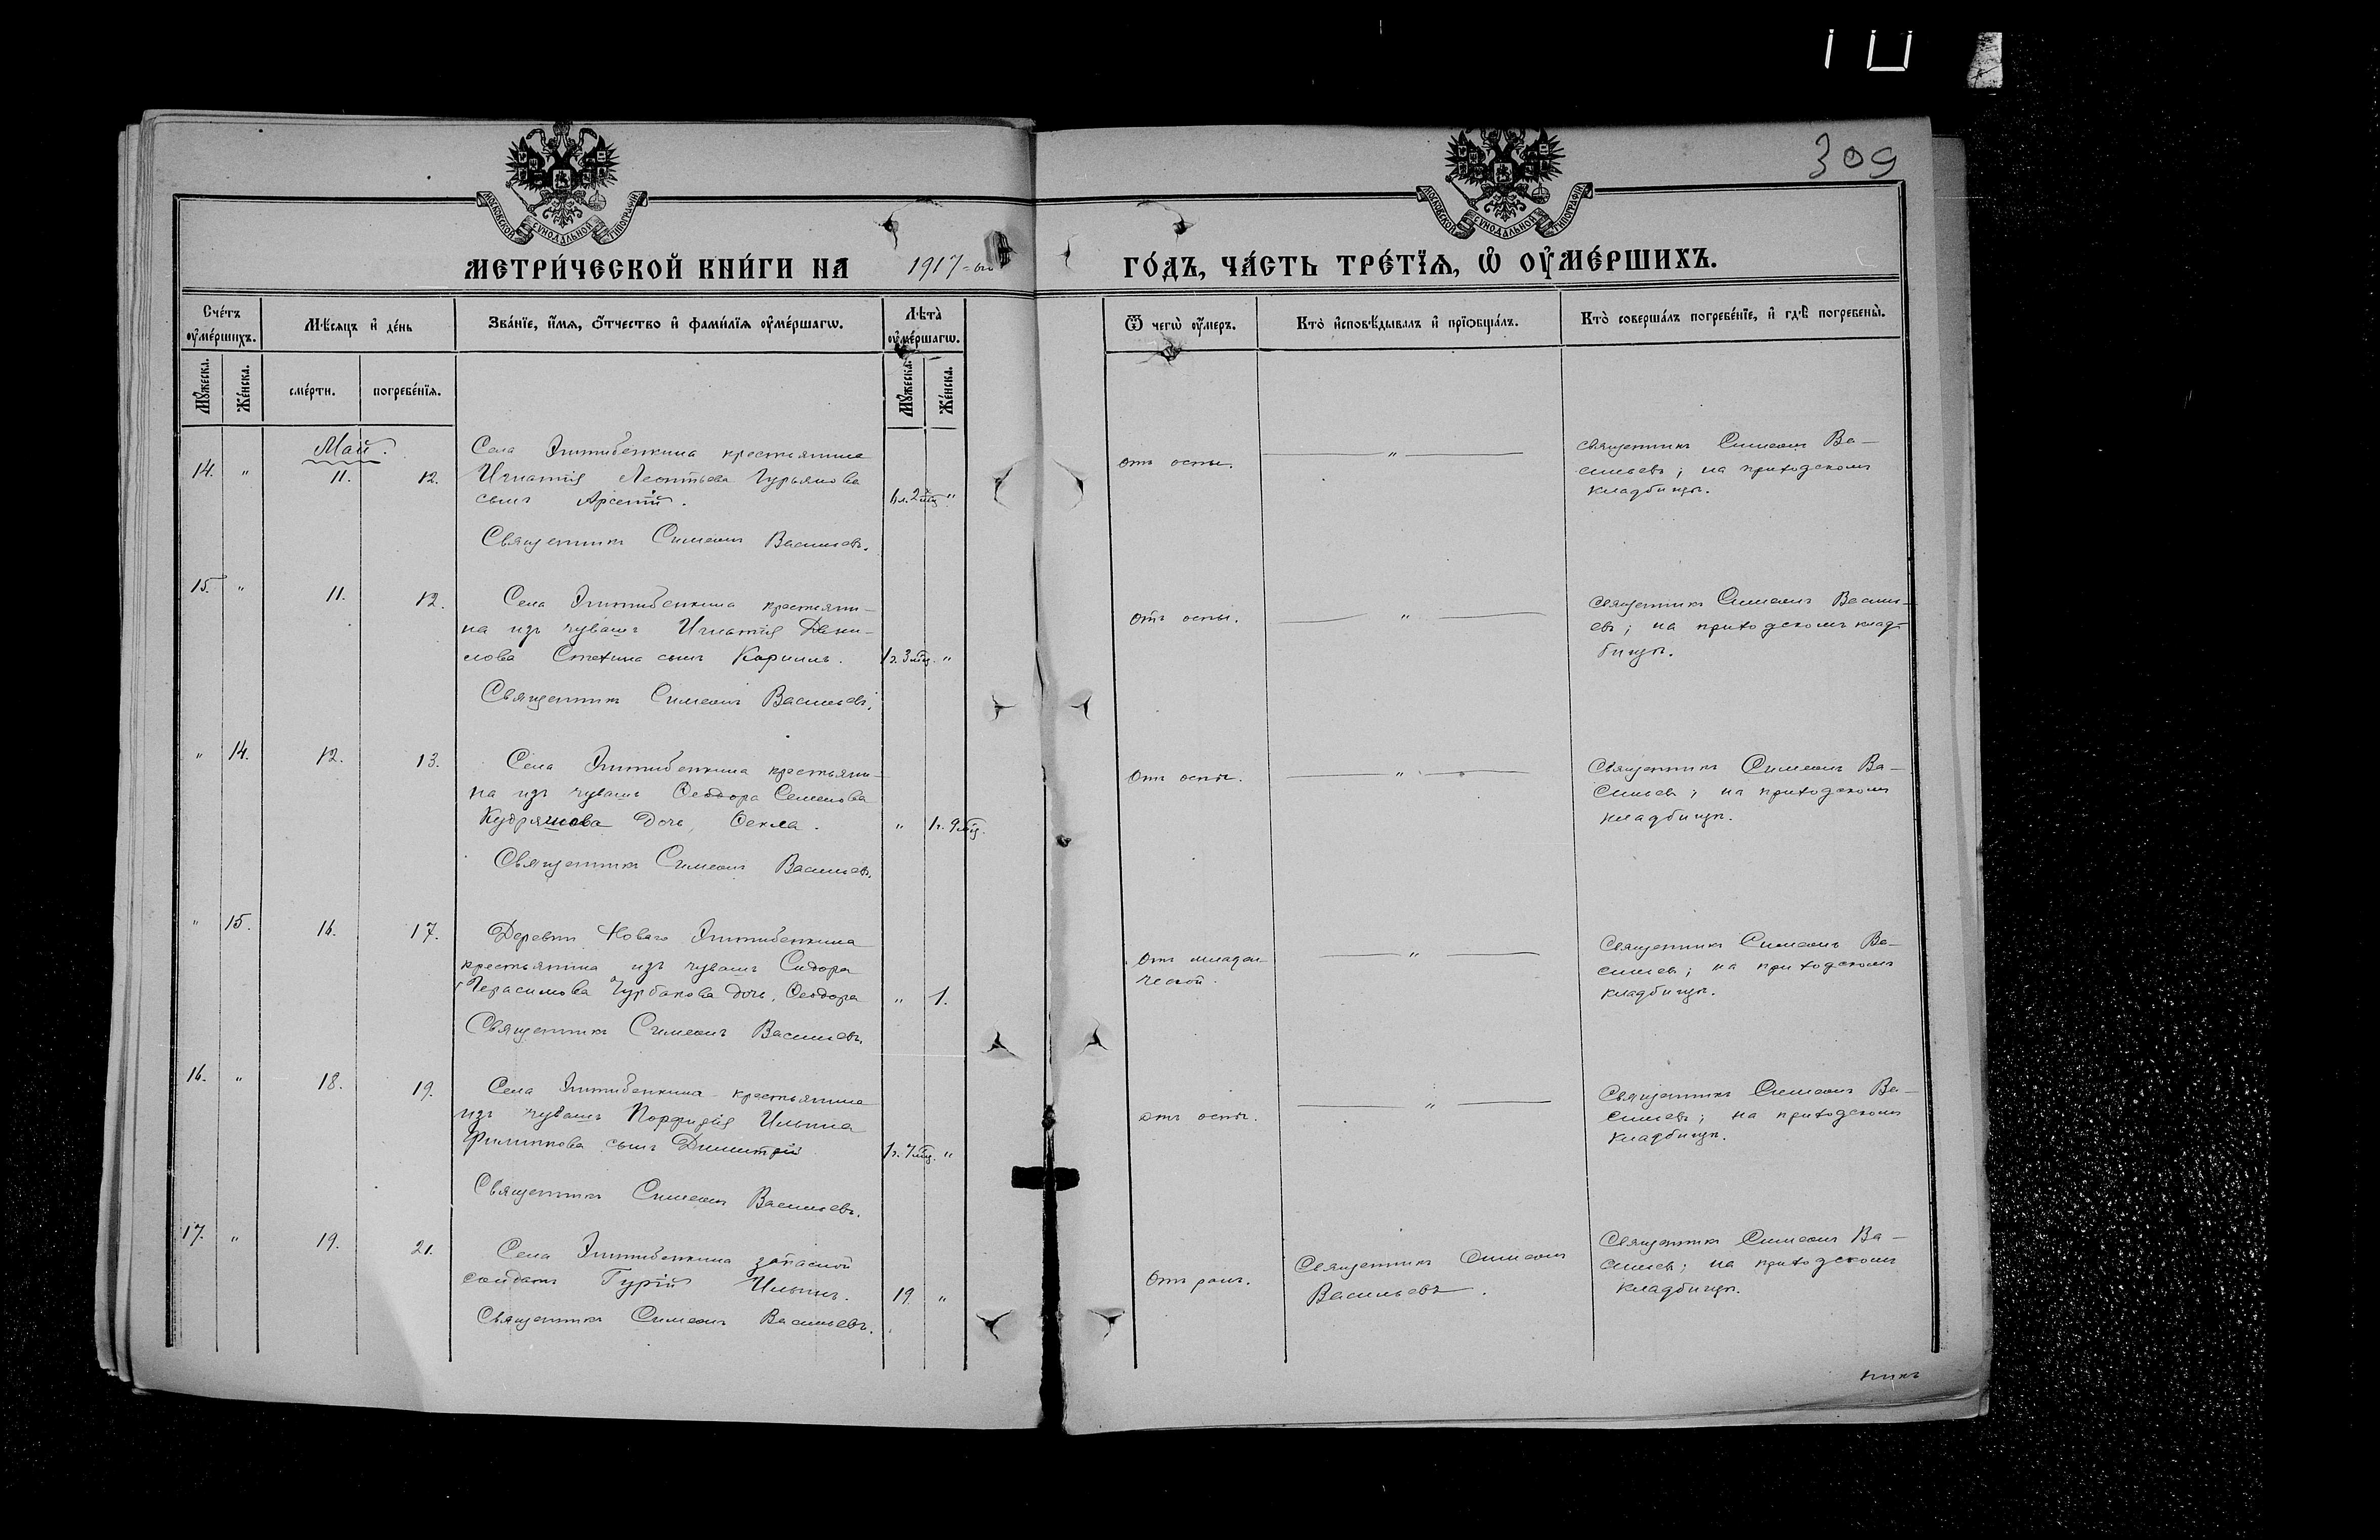 309
МОСКОВСКОЙ СѴНОДАЛЬНОЙ ТИПОГРАФІИ
МОСКОВСКОЙ СѴНОДАЛЬНОЙ ТИПОГРАФІИ
МЕТРИ́ЧЕСКОЙ КНИ́ГИ НА 1917-ый ГО́ДЪ, ЧА́СТЬ ТРЕ́ТЇѦ, Ѡ ОУМЕ́РШИХЪ.
Сче́тъ оуме́ршихъ.
Мѣ́сяцъ и де́нь
Зва́нїе, и́мѧ, о́тчество и фами́лїѧ оуме́ршагѡ.
Лѣ́та оуме́ршагѡ.
Ѿ чегѡ̀ оу́меръ.
Кто̀ исповѣ́дывалъ и прїѻбща́лъ.
Кто̀ соверша́лъ погребе́нїе, и гдѣ̀ погребены̀.
Мꙋ́жеска.
Же́нска.
сме́рти.
погребе́нїѧ.
Мꙋ́жеска.
Же́нска.
Май.
14. " 11. 12.
Села Эштебенькина крестьянина
Игнатія Леонтьева Гурьянова
сынъ Арсеній.
Священникъ Симеонъ Васильевъ.
"
отъ оспы.
"
священникъ Симеонъ Ва-
сильевъ; на приходскомъ
кладбищѣ.
15. " 11. 12.
Села Эштебенькина крестьяни-
на изъ чувашъ Игнатія Дани-
лова Стехина сынъ Кириллъ.
1 г. 3 мѣц. "
Священникъ Симеонъ Васильевъ.
отъ оспы.
"
священникъ Симеонъ Василь-
евъ; на приходскомъ клад-
бищѣ.
" 14. 12. 13.
Села Эштебенькина крестьяни-
на изъ чувашъ Ѳеодора Семенова
Кудряшова дочь, Ѳекла.
" 1 г. 9 мѣц.
Священникъ Симеонъ Васильевъ.
Отъ оспы.
"
Священникъ Симеонъ Ва-
сильевъ; на приходскомъ
кладбищѣ.
" 15. 16. 17.
Деревни Новаго Эштебенькина
крестьянина изъ чувашъ Сидора
Герасимова Чурбакова дочь, Ѳеодора
" 1.
Священникъ Симеонъ Васильевъ.
Отъ младен-
ческой.
"
Священникъ Симеонъ Ва-
сильевъ; на приходскомъ
кладбищѣ.
16. " 18. 19.
Села Эштебенькина крестьянина
изъ чувашъ Порфирія Ильина
Филиппова сынъ Димитрій
1 г. 7 мѣц. "
Священникъ Симеонъ Васильевъ.
отъ оспы.
"
Священникъ Симеонъ Ва-
сильевъ; на приходскомъ
кладбищѣ.
17. " 19. 21.
Села Эштебенькина запасной
солдатъ Гурій Ильинъ.
19 "
Священникъ Симеонъ Васильевъ.
Отъ ранъ.
Священникъ Симеонъ
Васильевъ.
Священникъ Симеонъ Ва-
сильевъ; на приходскомъ
кладбищѣ.
никъ